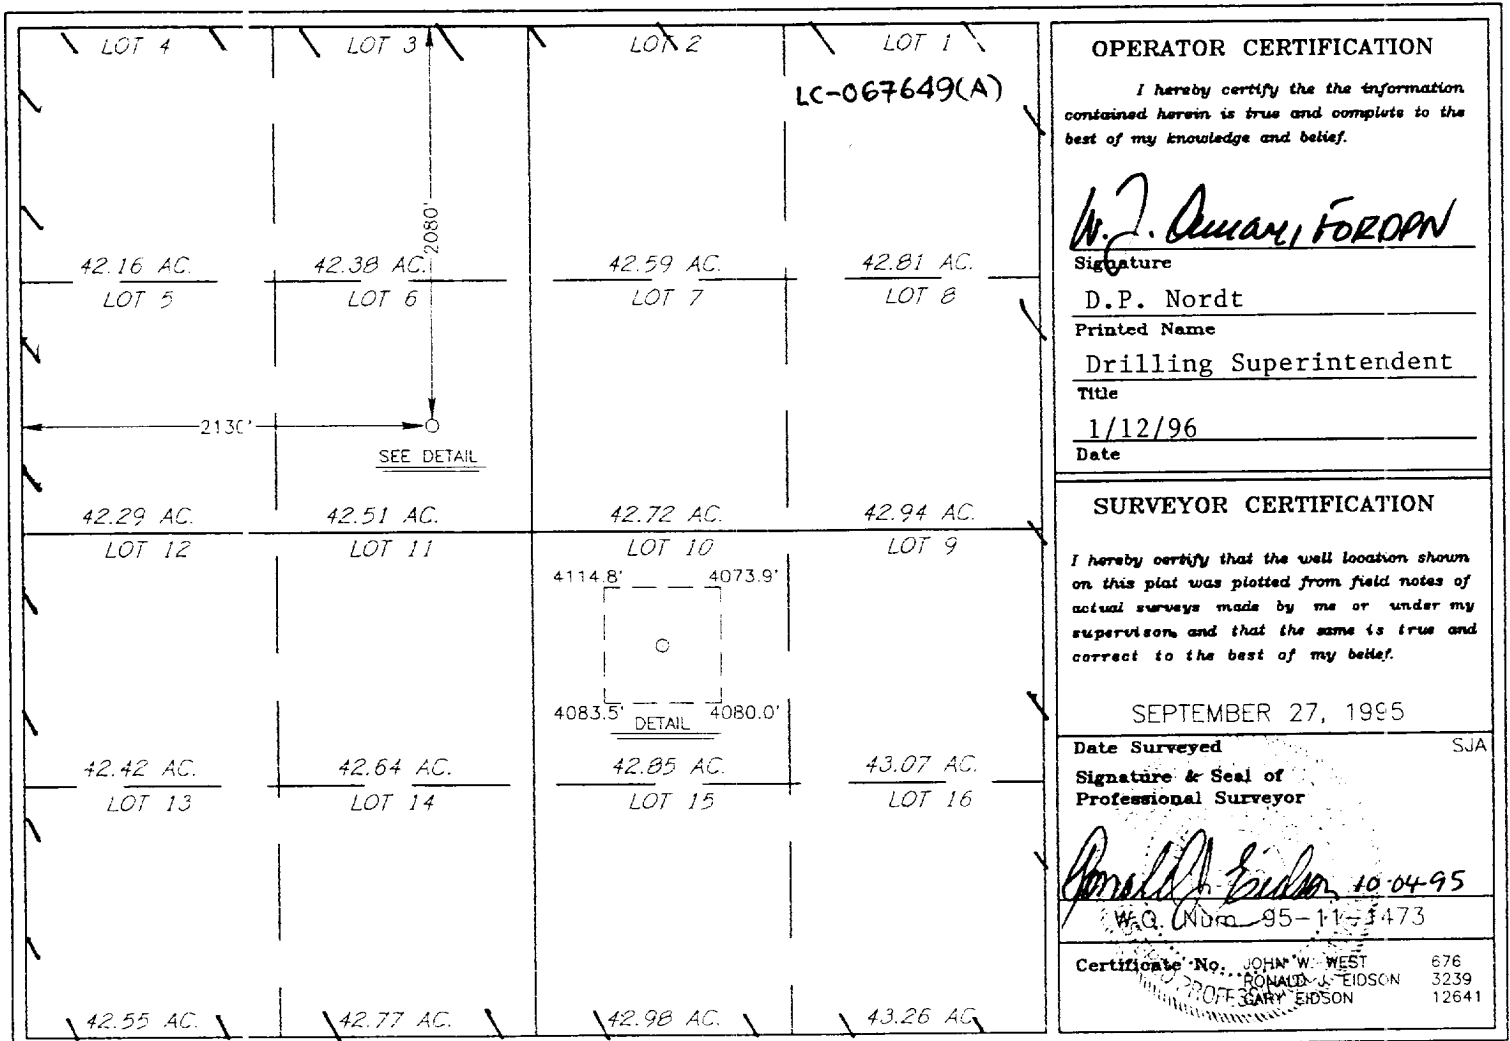 LOT 4 LOT 3 LOT 2 LOT 1
LC-067649(A)
2080'
42.16 AC. 42.38 AC. 42.59 AC. 42.81 AC.
LOT 5 LOT 6 LOT 7 LOT 8
2130'
SEE DETAIL
42.29 AC. 42.51 AC. 42.72 AC. 42.94 AC.
LOT 12 LOT 11 LOT 10 LOT 9
4114.8' 4073.9'
4083.5' 4080.0'
DETAIL
42.42 AC. 42.64 AC. 42.85 AC. 43.07 AC.
LOT 13 LOT 14 LOT 15 LOT 16
42.55 AC. 42.77 AC. 42.98 AC. 43.26 AC.
OPERATOR CERTIFICATION
I hereby certify the the information
contained herein is true and complete to the
best of my knowledge and belief.
FOR DPN
Signature
D.P. Nordt
Printed Name
Drilling Superintendent
Title
1/12/96
Date
SURVEYOR CERTIFICATION
I hereby certify that the well location shown
on this plat was plotted from field notes of
actual surveys made by me or under my
supervison, and that the same is true and
correct to the best of my belief.
SEPTEMBER 27, 1995
Date Surveyed SJA
Signature & Seal of
Professional Surveyor
Ronald J. Eidson 10-04-95
W.O. Num. 95-11-1473
Certificate No. JOHN W. WEST 676
RONALD J. EIDSON 3239
GARY EIDSON 12641